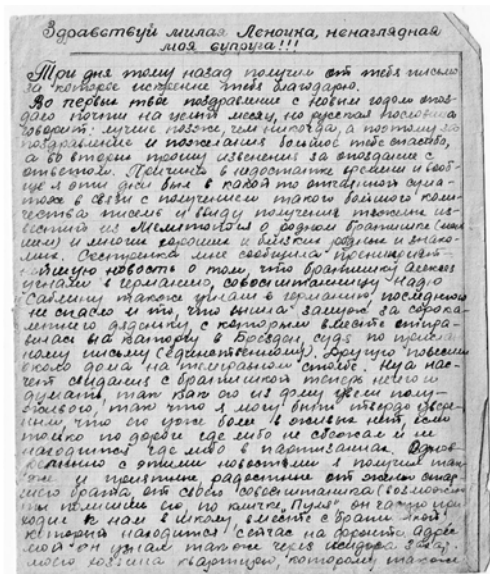 Здравствуй милая Леночка, ненаглядная
моя супруга!!!
Три дня тому назад получил от тебя письмо
за которое искренне тебя благодарю.
Во первых твое поздравление с новым годом опоз-
дало почти на целый месяц, но русская пословица
говорит: лучше позже, чем никогда, а поэтому за
поздравление и пожелания большое тебе спасибо,
а во вторых прошу извенения за опоздание с
ответом. Причина в недостатке времени и вооб-
ще я эти дни был в какой то отчаянной сума-
тохе в связи с получением такого большого коли-
чества писем и ввиду получения тяжелых из-
вестий из Мелитополя о родном братишке
и многих хороших и близких родных и знако-
мых. Сестренка мне сообщила
новость о том, что братишку Алексея
угнали в германию, совоспитанницу Надю
Саблину также угнали в германию, последнюю
не спасло и то, что вышла замуж за сорока-
летнего дядюшку, с которым вместе отпра-
вилась на каторгу в Брездан, судя по прислан-
ному письму (единственному). Другого повесили
около дома на телеграфном столбе. Ну а на-
счет свидания с братишкой теперь нечего и
думать, так как его из дому увели полу-
живого, так что я могу быть твердо уверен-
ным, что его уже боле в живых нет, если
только по дороге где либо не сбежал и не
находится где либо в партизанах. Однов-
ременно с этими новостями я получил так-
же и приятные радостные от жены стар-
шего брата, от своего совоспитаника (возможно
ты помнишь его по кличке "Пуля" он часто при-
ходил к нам в школу, вместе с братишкой)
который находится сейчас на фронте, адрес
мой он узнал также через
моего хозяина квартиры, которому также